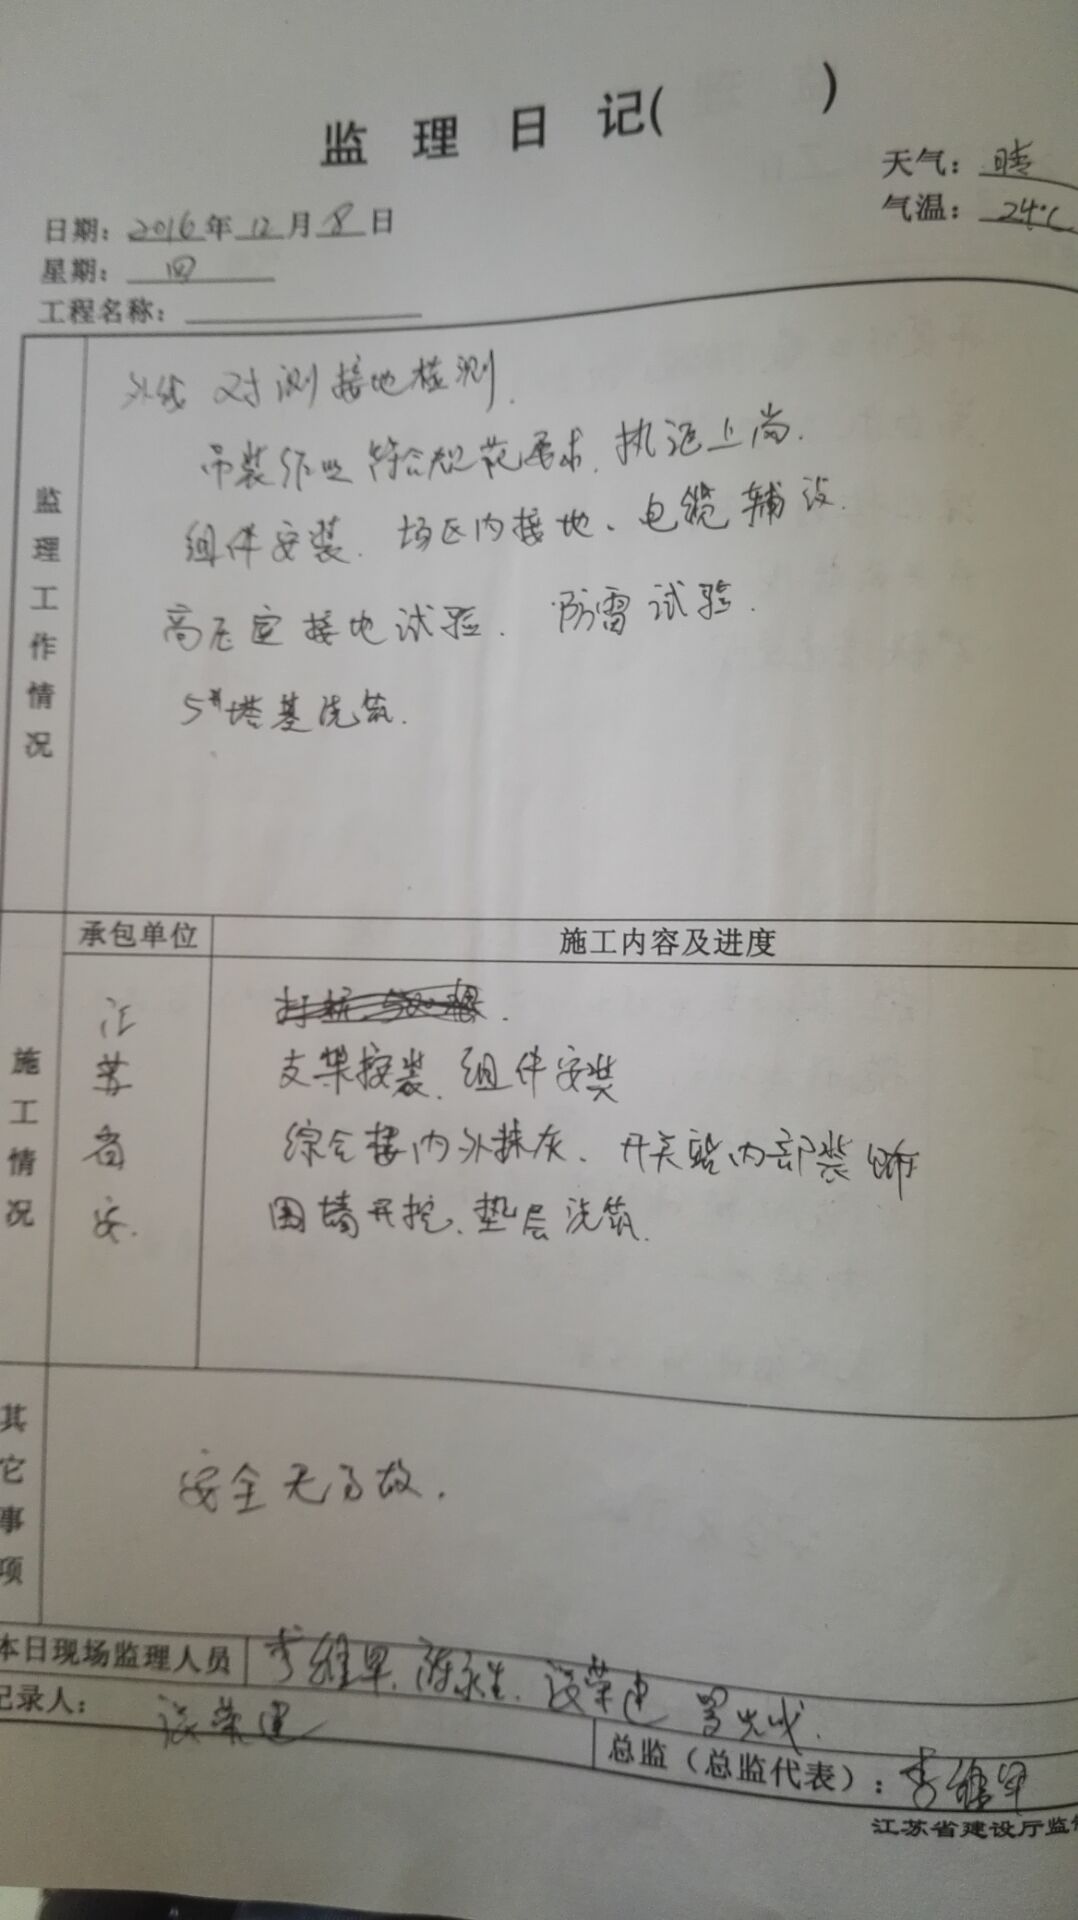 监理日记( )
天气：晴
气温：24℃
日期：2016年12月8日
星期：四
工程名称：
监理工作情况
外线对测接地检测.
吊装作业符合规范要求、执证上岗.
组件安装、场区内接地、电缆辅设.
高压室接地试验. 防雷试验.
5#塔基浇筑.
承包单位 施工内容及进度
施工情况
江苏省安.
支架按装、组件安装
综合楼内外抹灰、开关站内部装饰
围墙开挖、垫层浇筑.
其它事项
安全无事故.
本日现场监理人员 李维早、陈永生、谈荣建 罗光成.
记录人： 谈荣建
总监（总监代表）：李维早
江苏省建设厅监